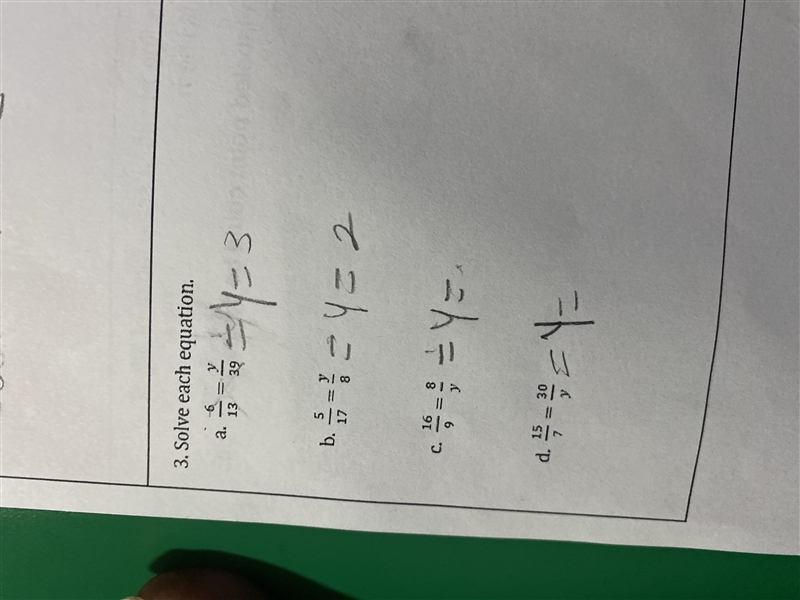 3. Solve each equation.
a. 6/13 = y/39 = y = 3
b. 5/17 = y/8 = y = 2
c. 16/9 = 8/y = y =
d. 15/7 = 30/y = y =